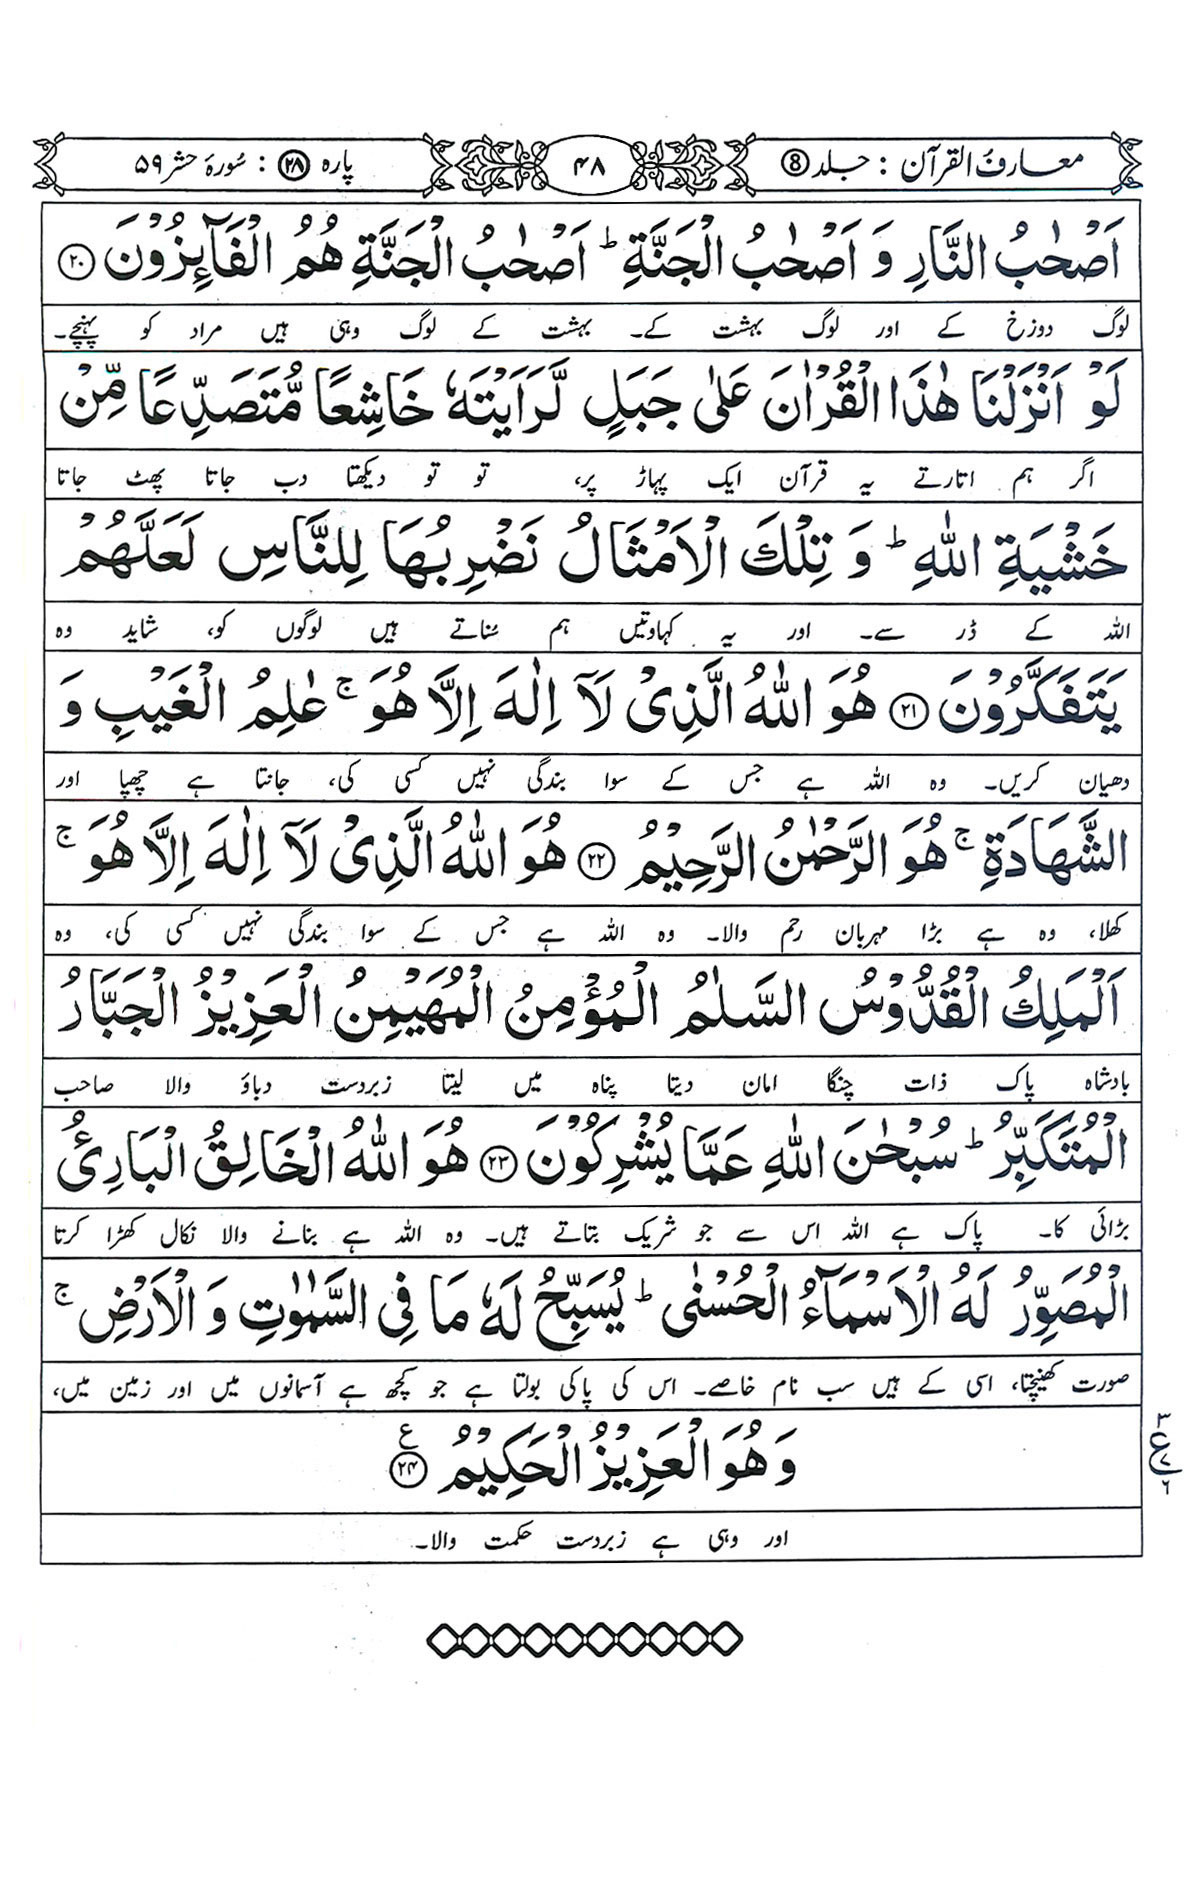 معارف القرآن : جلد ⑧
۴۸
پارہ ۲۸ : سُورۂ حشر ۵۹
اَصْحٰبُ النَّارِ وَ اَصْحٰبُ الْجَنَّةِ ؕ اَصْحٰبُ الْجَنَّةِ هُمُ الْفَآىِٕزُوْنَ ۲۰
لوگ دوزخ کے اور لوگ بہشت کے۔ بہشت کے لوگ وہی ہیں مراد کو پہنچے۔
لَوْ اَنْزَلْنَا هٰذَا الْقُرْاٰنَ عَلٰى جَبَلٍ لَّرَاَيْتَهٗ خَاشِعًا مُّتَصَدِّعًا مِّنْ
اگر ہم اتارتے یہ قرآن ایک پہاڑ پر، تو تو دیکھتا دب جاتا پھٹ جاتا
خَشْيَةِ اللّٰهِ ؕ وَ تِلْكَ الْاَمْثَالُ نَضْرِبُهَا لِلنَّاسِ لَعَلَّهُمْ
اللہ کے ڈر سے۔ اور یہ کہاوتیں ہم سُناتے ہیں لوگوں کو، شاید وہ
يَتَفَكَّرُوْنَ ۲۱ هُوَ اللّٰهُ الَّذِىْ لَآ اِلٰهَ اِلَّا هُوَ ۚ عٰلِمُ الْغَيْبِ وَ
دھیان کریں۔ وہ اللہ ہے جس کے سوا بندگی نہیں کسی کی، جانتا ہے چھپا اور
الشَّهَادَةِ ۚ هُوَ الرَّحْمٰنُ الرَّحِيْمُ ۲۲ هُوَ اللّٰهُ الَّذِىْ لَآ اِلٰهَ اِلَّا هُوَ ۚ
کھلا، وہ ہے بڑا مہربان رحم والا۔ وہ اللہ ہے جس کے سوا بندگی نہیں کسی کی، وہ
اَلْمَلِكُ الْقُدُّوْسُ السَّلٰمُ الْمُؤْمِنُ الْمُهَيْمِنُ الْعَزِيْزُ الْجَبَّارُ
بادشاہ پاک ذات چنگا امان دیتا پناہ میں لیتا زبردست دباؤ والا صاحب
الْمُتَكَبِّرُ ؕ سُبْحٰنَ اللّٰهِ عَمَّا يُشْرِكُوْنَ ۲۳ هُوَ اللّٰهُ الْخَالِقُ الْبَارِئُ
بڑائی کا۔ پاک ہے اللہ اس سے جو شریک بتاتے ہیں۔ وہ اللہ ہے بنانے والا نکال کھڑا کرتا
الْمُصَوِّرُ لَهُ الْاَسْمَآءُ الْحُسْنٰى ؕ يُسَبِّحُ لَهٗ مَا فِى السَّمٰوٰتِ وَ الْاَرْضِ ۚ
صورت کھینچتا، اسی کے ہیں سب نام خاصے۔ اس کی پاکی بولتا ہے جو کچھ ہے آسمانوں میں اور زمین میں،
وَ هُوَ الْعَزِيْزُ الْحَكِيْمُ ۲۴ ع
۳
ع ۷
۶
اور وہی ہے زبردست حکمت والا۔